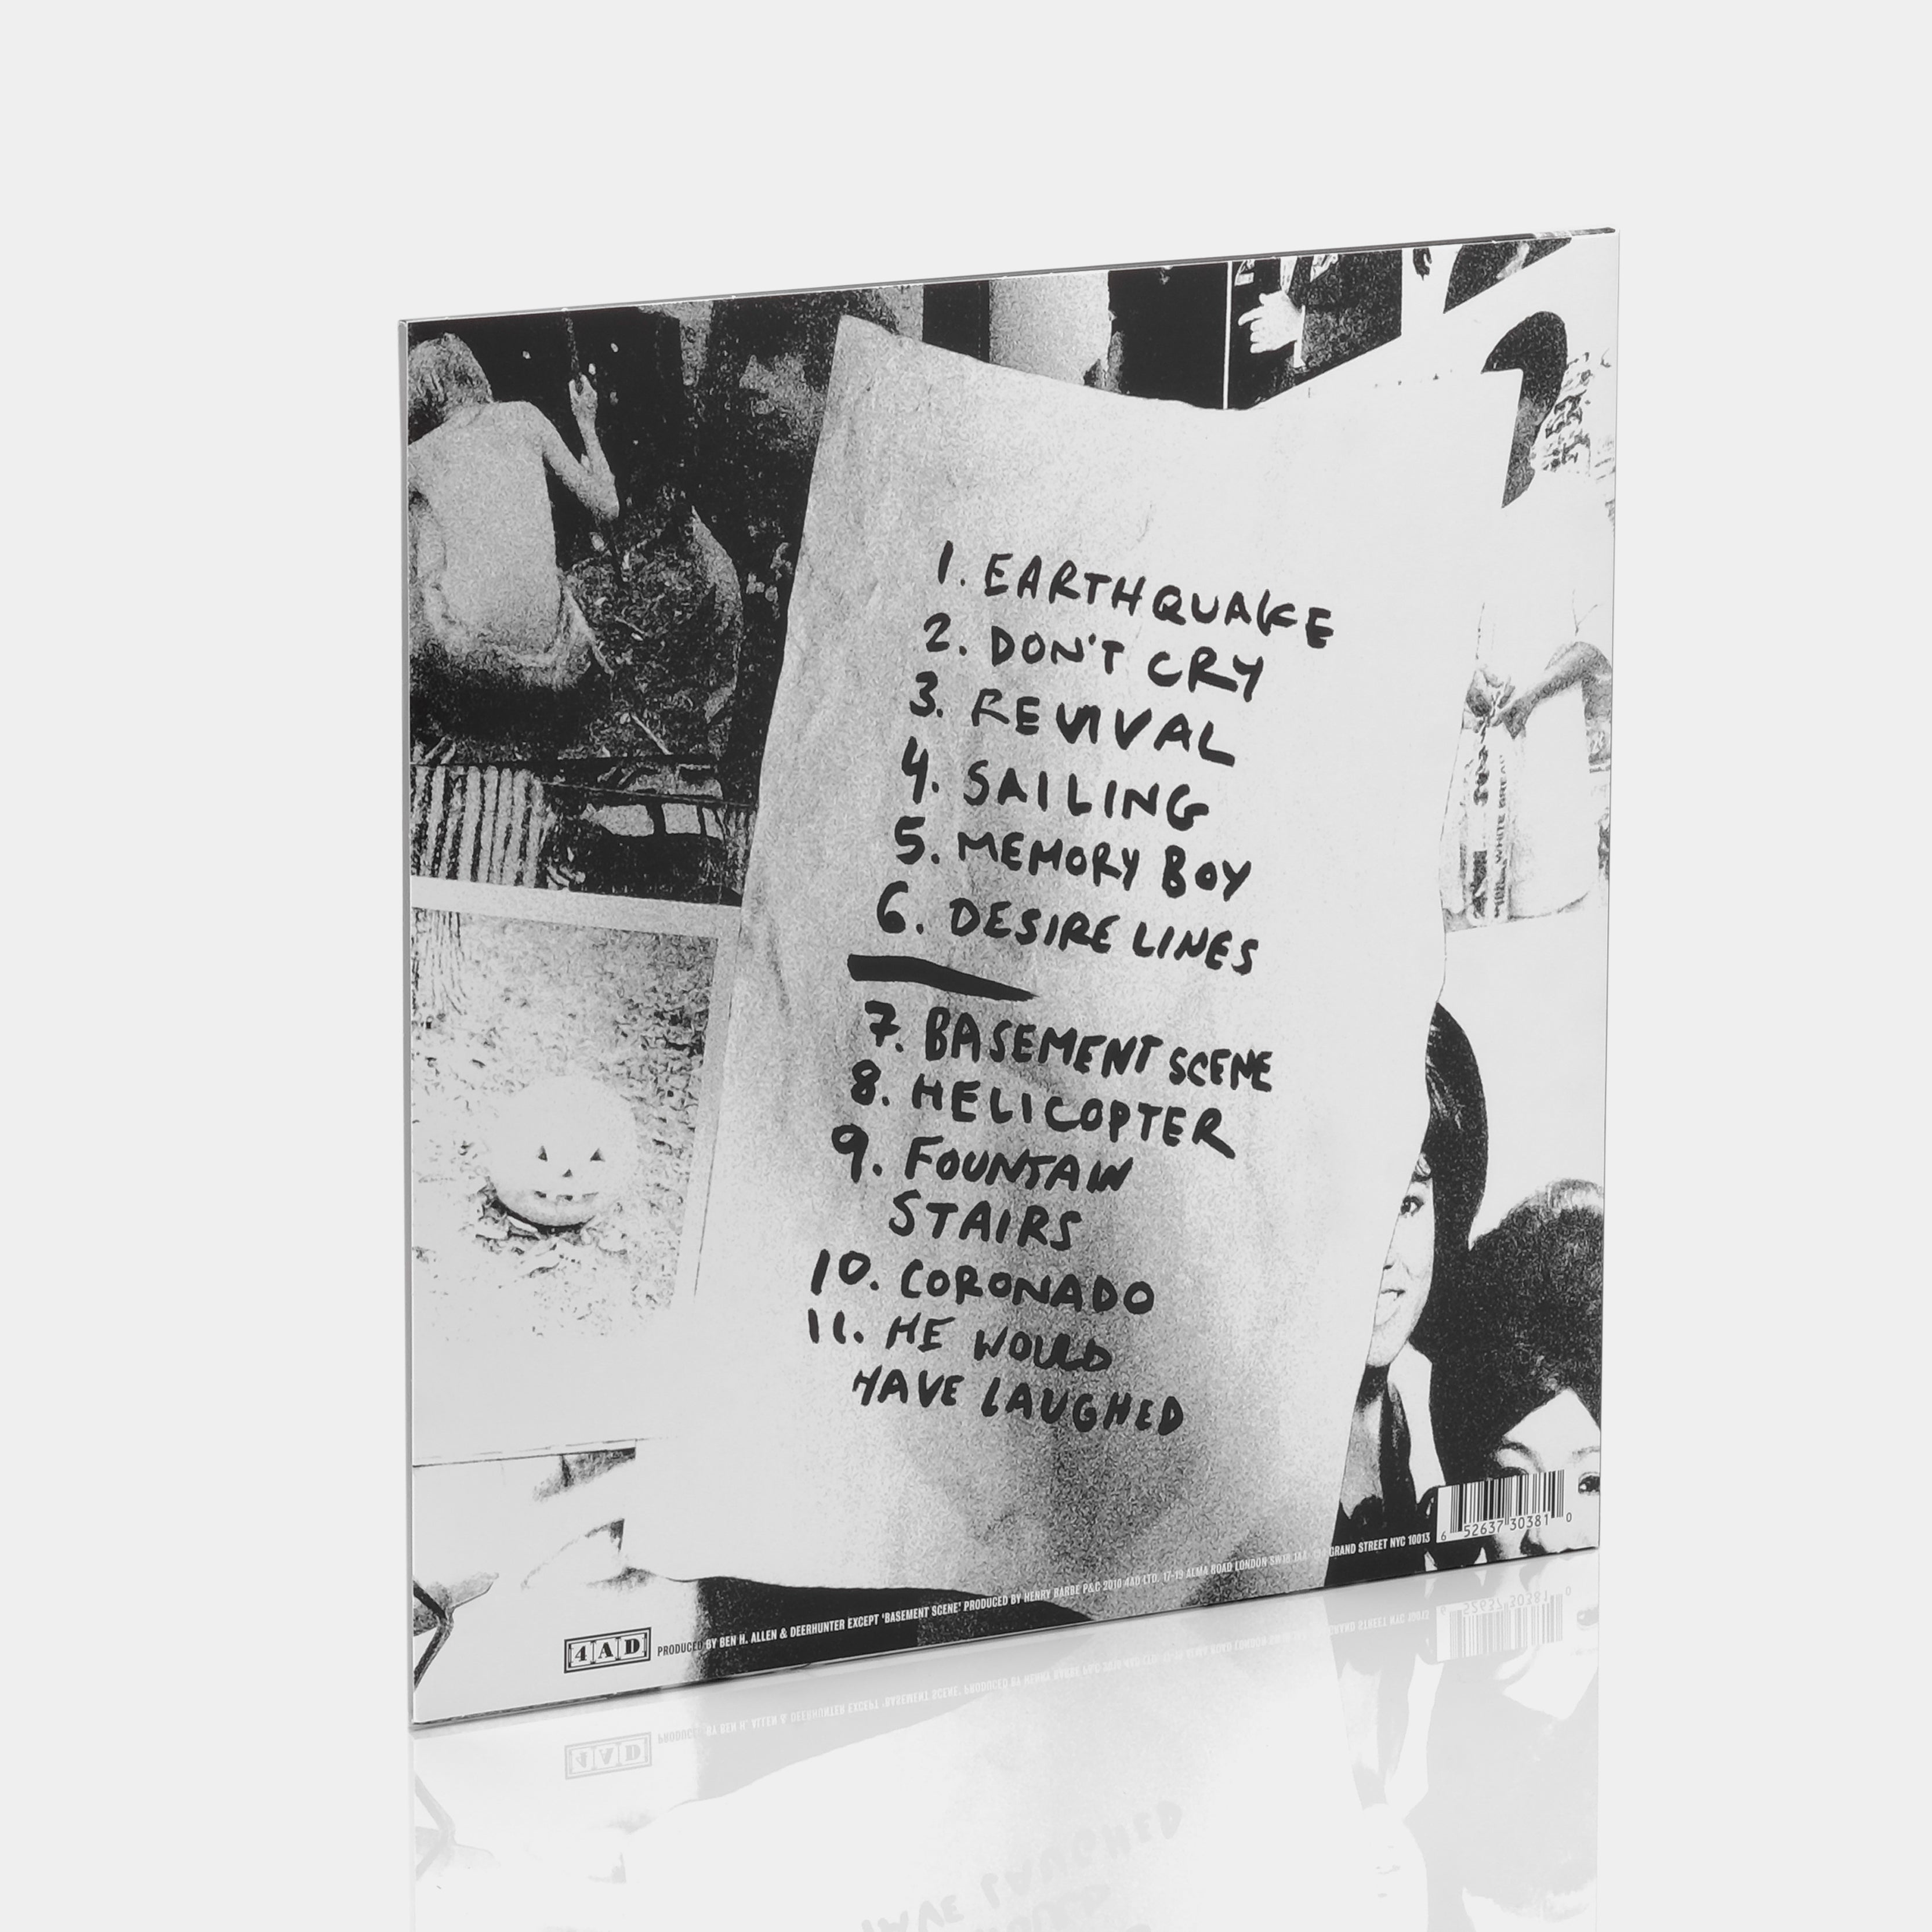 1. EARTHQUAKE
2. DON'T CRY
3. REVIVAL
4. SAILING
5. MEMORY BOY
6. DESIRE LINES
7. BASEMENT SCENE
8. HELICOPTER
9. FOUNTAIN
STAIRS
10. CORONADO
11. HE WOULD
HAVE LAUGHED
WHITE BREAD
4AD PRODUCED BY BEN H. ALLEN & DEERHUNTER EXCEPT 'BASEMENT SCENE' PRODUCED BY HENRY BARBE P&C 2010 4AD LTD. 17-19 ALMA ROAD LONDON SW18 1AA GRAND STREET NYC 10013
6 52637 30381 0